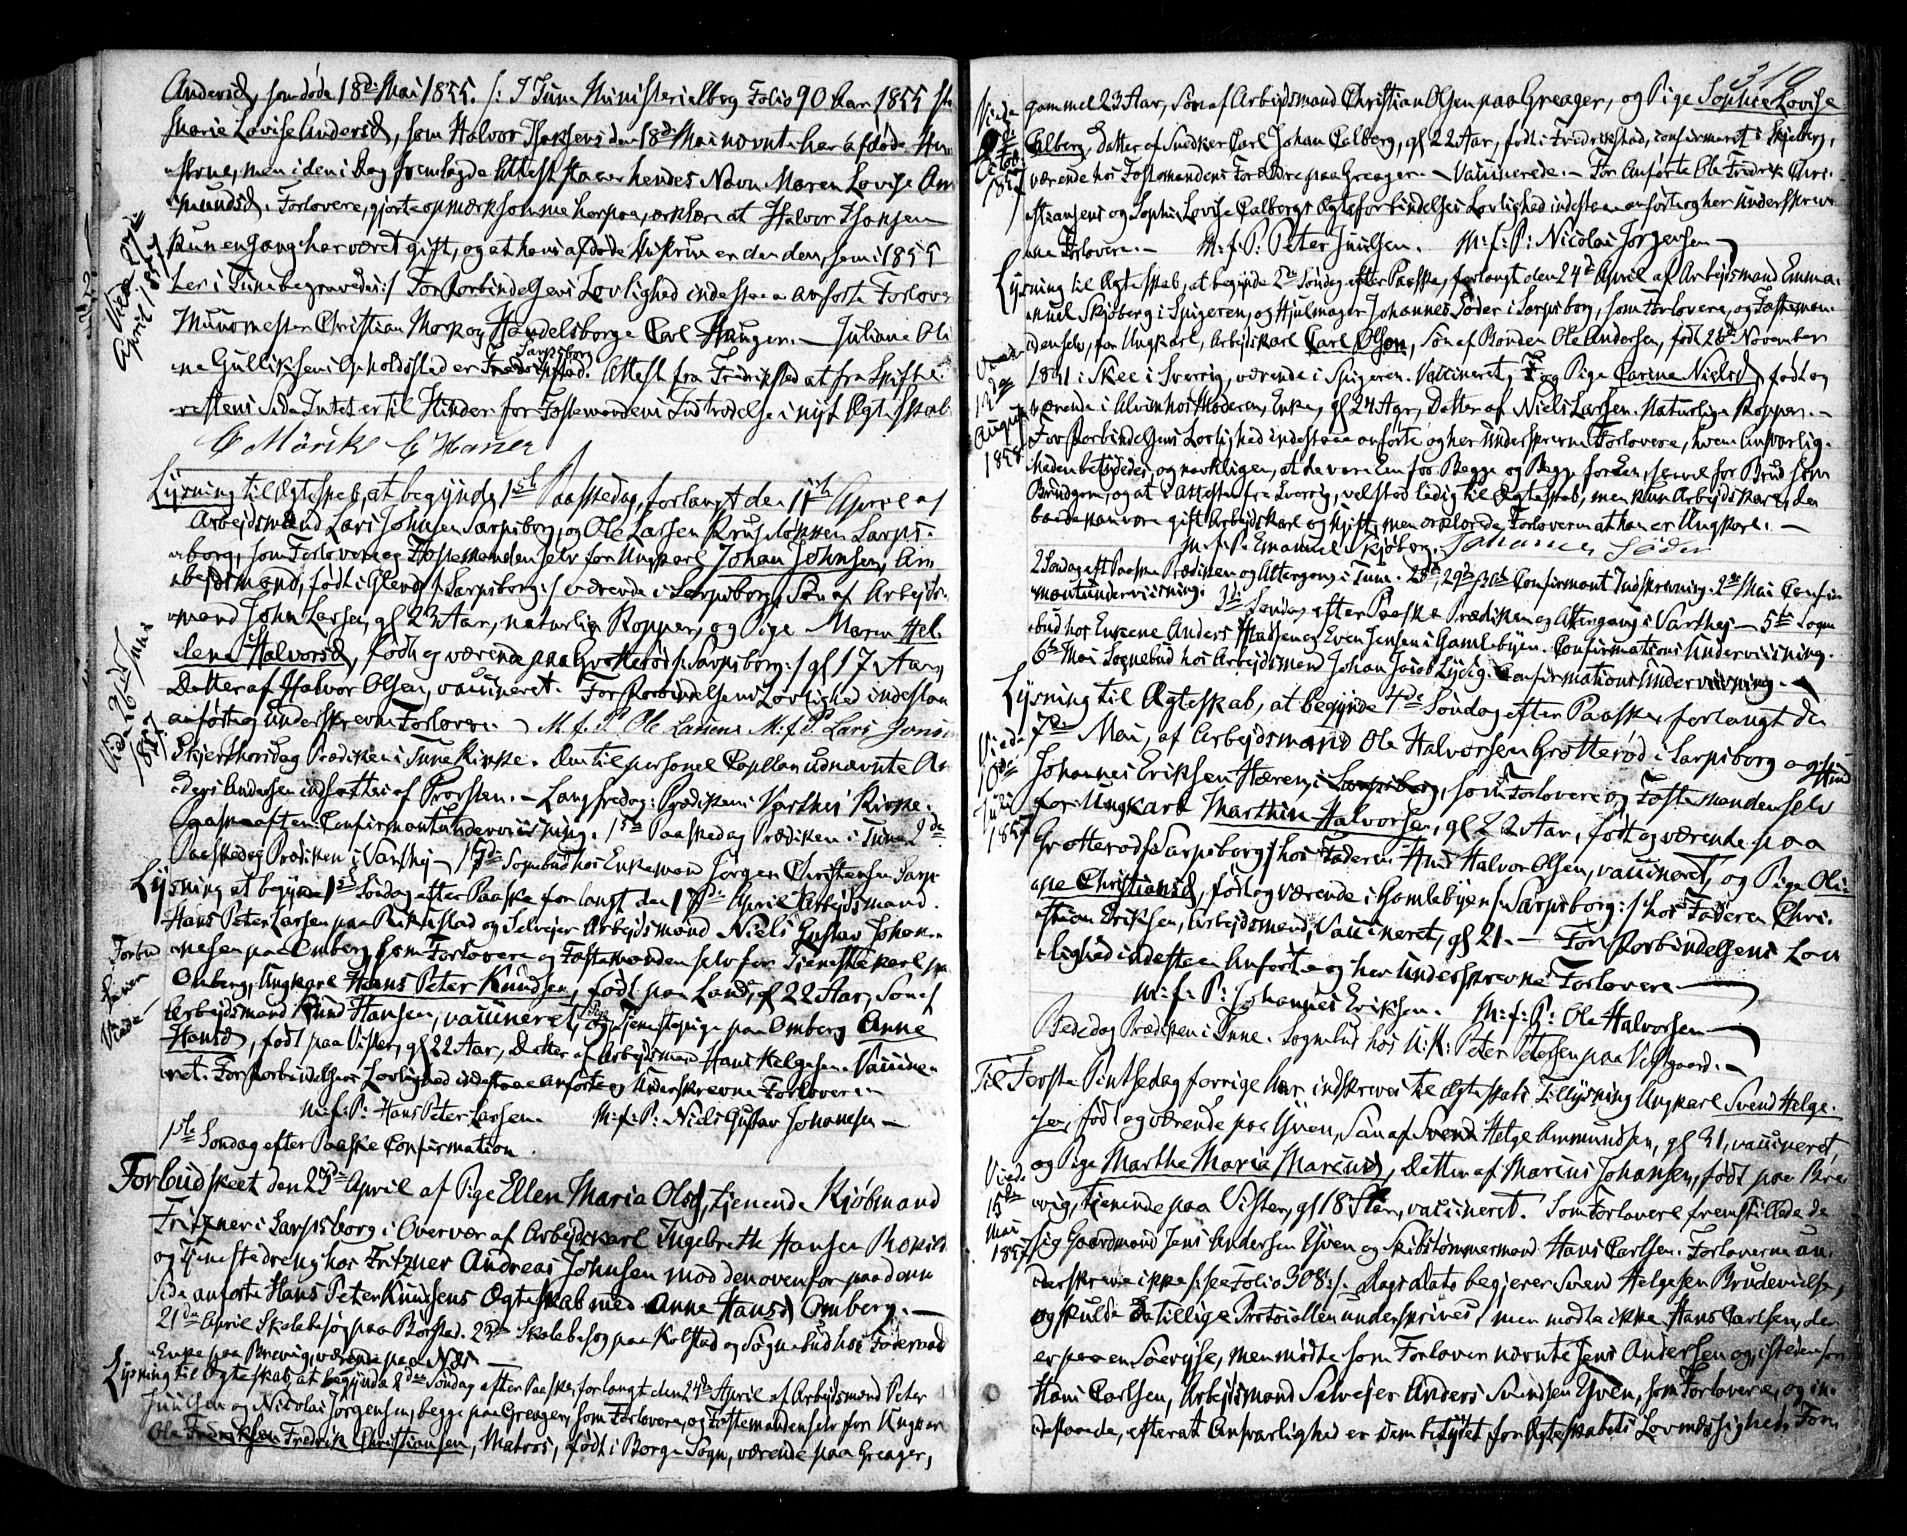 Andersd, som døde 18de Mai 1855. /: I Tune Ministerialbog Folio 90 Aar 1855
Marie Lovise Andersd, som Halvor Thorsens den 18de Mai nævnte har afdøde
men i den i Dag fremlagde Attest staaer hendes Navn Maren Lovise Am
mundsd. Forloverne, gjorte opmærksomme herpaa, erklære at Halvor Thorsen
kun en Gang har været gift, og at hans afdøde Hustrue er den den, som i 1855
her i Tune begravedes :/ For Forbindelsens Lovlighed indestaae anførte Forlovere
Muurmester Christian Mørk og Handelsborger Carl Haugen. — Juliane Oli
ne Gulliksens Opholdssted er Sarpsborg. Attest fra Fredrikstad at fra Skifte-
rettens Side Intet er til Hinder for Fæstemandens Indtrædelse i nyt Ægteskab
Viede 27de
April 1857
Lysning til Ægteskab, at begynde 1ste Paaskedag, forlangt den 11te April af
Arbejdsmand Lars Johnsen Sarpsborg, og Ole Larsen Kruseløkken Sarps-
borg, som Forlovere og Fæstemanden selv for Ungkarl Johan Johnsen, Ar-
bejdsmand, født i Glemø /: Sarpsborg :/ værende i Sarpsborg, Søn af Arbejds-
mand John Larsen, gl 23 Aar, naturlige Kopper, og Pige Maren Hel-
lene Halvorsd, født og værende paa Grotterød /: Sarpsborg :/ gl 17 Aar,
Datter af Halvor Olsen, vaccineret. For Forbindelsens Lovlighed indestaae
anførte og underskrevne Forlovere. M.f.P. Ole Larsens M.f.P. Lars Jonsen
Viede 26de Juni
1857
Skjærthorsdag Prædiken i Tune Kirke. Den til personel Capellan udnævnte An-
ders Andersen indsattes af Provsten. — Langfredag: Prædiken i Varteig Kirke.
Paaskeaften: Confirmantunderviisning. 1ste Paaskedag Prædiken i Tune 2de
Paaskedag Prædiken i Varteig — 17de Sognebud hos Enkemand Jørgen Christensen Sarp
Lysning at begynde 1ste Søndag efter Paaske forlangt den 17de April Arbejdsmand
Hans Peter Larsen paa Rikestad og Selvejer Arbejdsmand Niels Gustav Johan-
nesen paa Omberg, som Forlovere og Fæstemanden selv for Tjenestekarl paa
Omberg, Ungkarl Hans Peter Knudsen, født paa Lande, gl 22 Aar, Søn af
Arbejdsmand Knud Hansen, vaccineret, og Pige Tjenestepige paa Omberg Anne
Hansd, født paa Visten, gl 22 Aar, Datter af Arbejdsmand Hans Helgesen. Vaccine-
ret. For Forbindelsens Lovlighed indestaae anførte og underskrevne Forlovere
M:f:P: Hans Peter Larsen. M:f:P: Niels Gustav Johansen —
Forbud
Viede
1ste Søndag efter Paaske Confirmation.
Forbud skeet den 23de April af Pige Ellen Maria Olsd, tjenende Kjøbmand
Fritzner i Sarpsborg i Overvær af Arbejdskarl Ingebreth Hansen
og Tjenestedreng hos Fritzner Andreas Johnsen mod den ovenfor paa denne
Side anførte Hans Peter Knudsens Ægteskab med Anne Hansd Omberg. —
21de April Skolebesøg paa Borstad. 23de Skolebesøg paa Kolstad og Sognebud hos Føderaad
Enke paa Brevig, værende paa
Lysning til Ægteskab, at begynde 2den Søndag efter Paaske, forlangt den 24de April af Arbejdsmand Peter
Juulsen og Nicolai Jørgensen, begge paa Greager, som Forlovere, og Fæstemanden selv for Ungkarl
Ole Fredrik Christiansen, Matros, født i Borge Sogn, værende paa Greager,
310
gammel 23 Aar, Søn af Arbejdsmand Christian Olsen paa Greager, og Pige Sophie Lovise
Calberg, Datter af Snedker Carl Johan Calberg, gl 22 Aar, født i Fredrikstad, confirmeret i Skjeberg,
værende hos Fæstemandens Forældre paa Greager. — Vaccinerede. — For Anførte Ole Fredrik Chri-
stiansens og Sophie Lovise Calbergs Ægteforbindelses Lovlighed indestaae anførte og her underskrev-
ne Forlovere. — M:f:P: Peter Juulsen. M:f:P: Nicolai Jørgensen
Viede
1857
Lysning til Ægteskab, at begynde 2den Søndag efter Paaske, forlangt den 24de April af Arbejdsmand Emma-
nuel Skjøberg i Spigeren, og Hjulmager Johannes Søder i Sarpsborg, som Forlovere, og Fæsteman-
den selv, for Ungkarl, Arbejdskarl Carl Olson, Søn af Bonden Ole Andersen, født 28de November
1831 i Skee i Sverrig, værende i Spigeren. Vaccineret, og Pige Carine Nielsd, født og
værende i Alvim hos Moderen, Enke, gl 24 Aar, Datter af Niels Larsen. Naturlige Kopper. —
For Forbindelsens Lovlighed indestaae anførte og her underskrevne Forlovere, hvem Ansvarlig-
heden betydedes, og navnligen, at de vare Een for Begge og Begge for Een, saavel for Brud som
Brudgom, og at i Attesten fra Sverrig, vel stod ledig til Ægteskab, men kun Arbejdskarl, der
baade kan være gift Arbejdskarl og ugift, men erklærede Forloverne at han er Ungkarl. —
M.f.P. Emanuel Skjøberg. Johannes Söder
Viede
12de
August
1858
2 Søndag eft Paaske Prædiken og Altergang i Tune. 28de, 29de, 30te Confirmant Indskrivning. 2den Mai Confir
mantunderviisning. 3die Søndag efter Paaske Prædiken og Altergang i Varteig — 5te Sogne
bud hos Enkene Anders Madsen og Even Jensen i Gamlebyen. Confirmations Underviisning.
6te Mai Sognebud hos Arbejdsmand Johan Jacob Lydig. Confirmations Underviisning. —
Lysning til Ægteskab, at begynde 4de Søndag efter Paaske, forlangt den
7de Mai, af Arbejdsmand Ole Halvorsen Grotterød i Sarpsborg og
Johannes Eriksen Hæren, i Sarpsborg, som Forlovere og Fæstemanden selv
for Ungkarl Marthin Halvorsen, gl 22 Aar, født og værende paa
Grotterød /: Sarpsborg :/ hos Faderen Halvor Olsen, vaccineret, og Pige Oli-
ane Christiansd, født og værende i Gamlebyen /: Sarpsborg :/ hos Faderen Chri-
stian Eriksen, Arbejdsmand, Vaccineret, gl 21. — For Forbindelsens Lov-
lighed indestaae Anførte og her underskrevne Forlovere
M:f:P: Johannes Eriksen. M:f:P: Ole Halvorsen
Viede
10de
Juli
1857
Bededag Prædiken i Tune. Sognebud hos U:K: Peter Petersen paa Vestgaard. —
Til Første Pintsedag forrige Aar indskreves til Ægteskabs Tillysning Ungkarl Svend Helge-
sen, født og værende paa Yven, Søn af Helge Ammundsen, gl 31, vaccineret,
og Pige Marthe Maria Marcusd, Datter af Marcus Johansen, født paa Bre
vig, tjenende paa Visten, gl 18 Aar, vaccineret. Som Forlovere fremstillede de
sig Gaardmand Jens Andersen Yven og Skibstømmermand Hans Carlsen. Forloverne un-
derskreve ikke /: see Folio 308 :/. Dags Dato begjærer Svend Helgesen Brudevielse,
og skulde da tillige Protocollen underskrives, men mødte ikke Hans Carlsen, der
er paa en Søereise, men mødte som Forlover nævnte Jens Andersen og, istedenfor
Hans Carlsen, Arbejdsmand Selvejer Anders Svendsen Yven, som Forlovere, og in-
destaaede, efter at Ansvarlighed er dem betydet for Ægteskabets Lovmæssighed. For
Viede
15de
Mai
1857